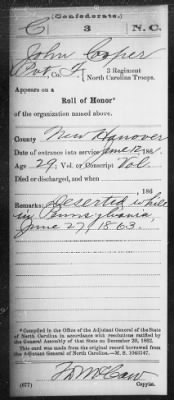 (Confederate.)
C 3 N.C.
John Cooper
Pvt, Co. F, 3 Regiment
North Carolina Troops.
Appears on a
Roll of Honor*
of the organization named above.
County New Hanover
Date of entrance into service June 12, 186
Age 29, Vol. or Conscript Vol.
Died or discharged, and when
186
Remarks: Deserted while
in Pennsylvania,
June 27, 1863.
*Compiled in the Office of the Adjutant General of the State
of North Carolina in accordance with resolutions ratified by
the General Assembly of that State on December 20, 1862.
This card was made from the original record borrowed from
the Adjutant General of North Carolina.—M. S.
(677) Copyist.